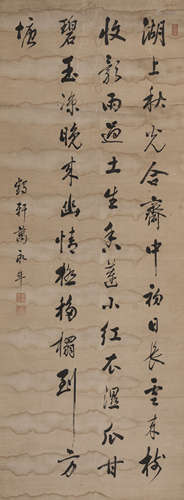 湖上秋光合齋中初日長雲來樹
收影雨過土生香蓮小紅衣濕瓜甘
碧玉涼晚來幽情極移榻到方
塘
鶴軒萬